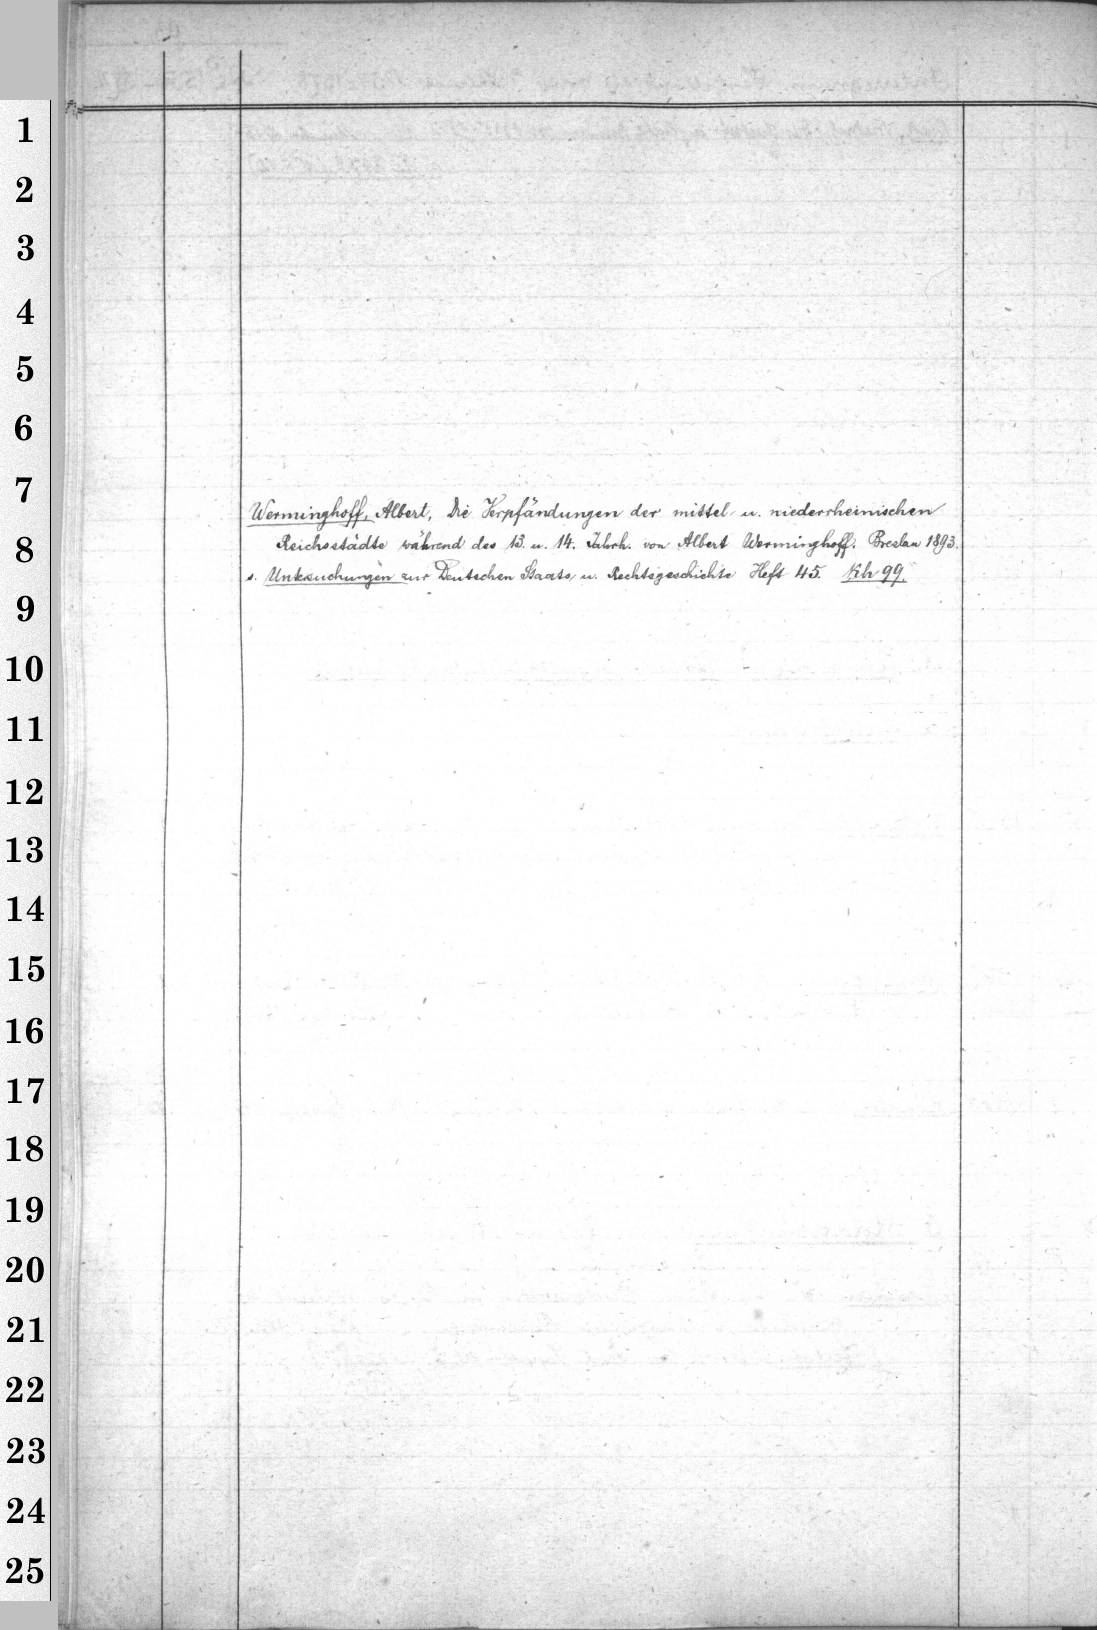 1
2
3
4
5
6
7
Werminghoff, Albert, Die Verpfändungen der mittel- u. niederrheinischen
Reichsstädte während des 13. u. 14. Jahrh. von Albert Werminghoff. Breslau 1893.
8
s. Untersuchungen zur Deutschen Staats u. Rechtsgeschichte Heft 45. Kh 99.
9
10
11
12
13
14
15
16
17
18
19
20
21
22
23
24
25